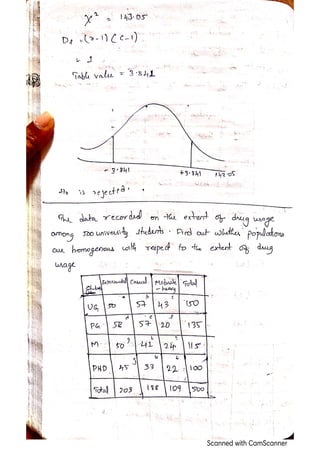 χ² = 143.05
Df = (r-1) (c-1)
= 1
Table value = 3.841
- 3.841 +3.841 143.05
H₀ is rejected.
The data recorded on the extent of drug usage
among 500 university students. Find out whether populations
are homogenous with respect to the extent of drug
usage
Casual Total
UG 50 a 57 b 43 c 150
PG 58 d 57 e 20 f 135
M 50 g 41 h 24 i 115
PHD 45 j 33 k 22 l 100
Total 203 188 109 500
Scanned with CamScanner